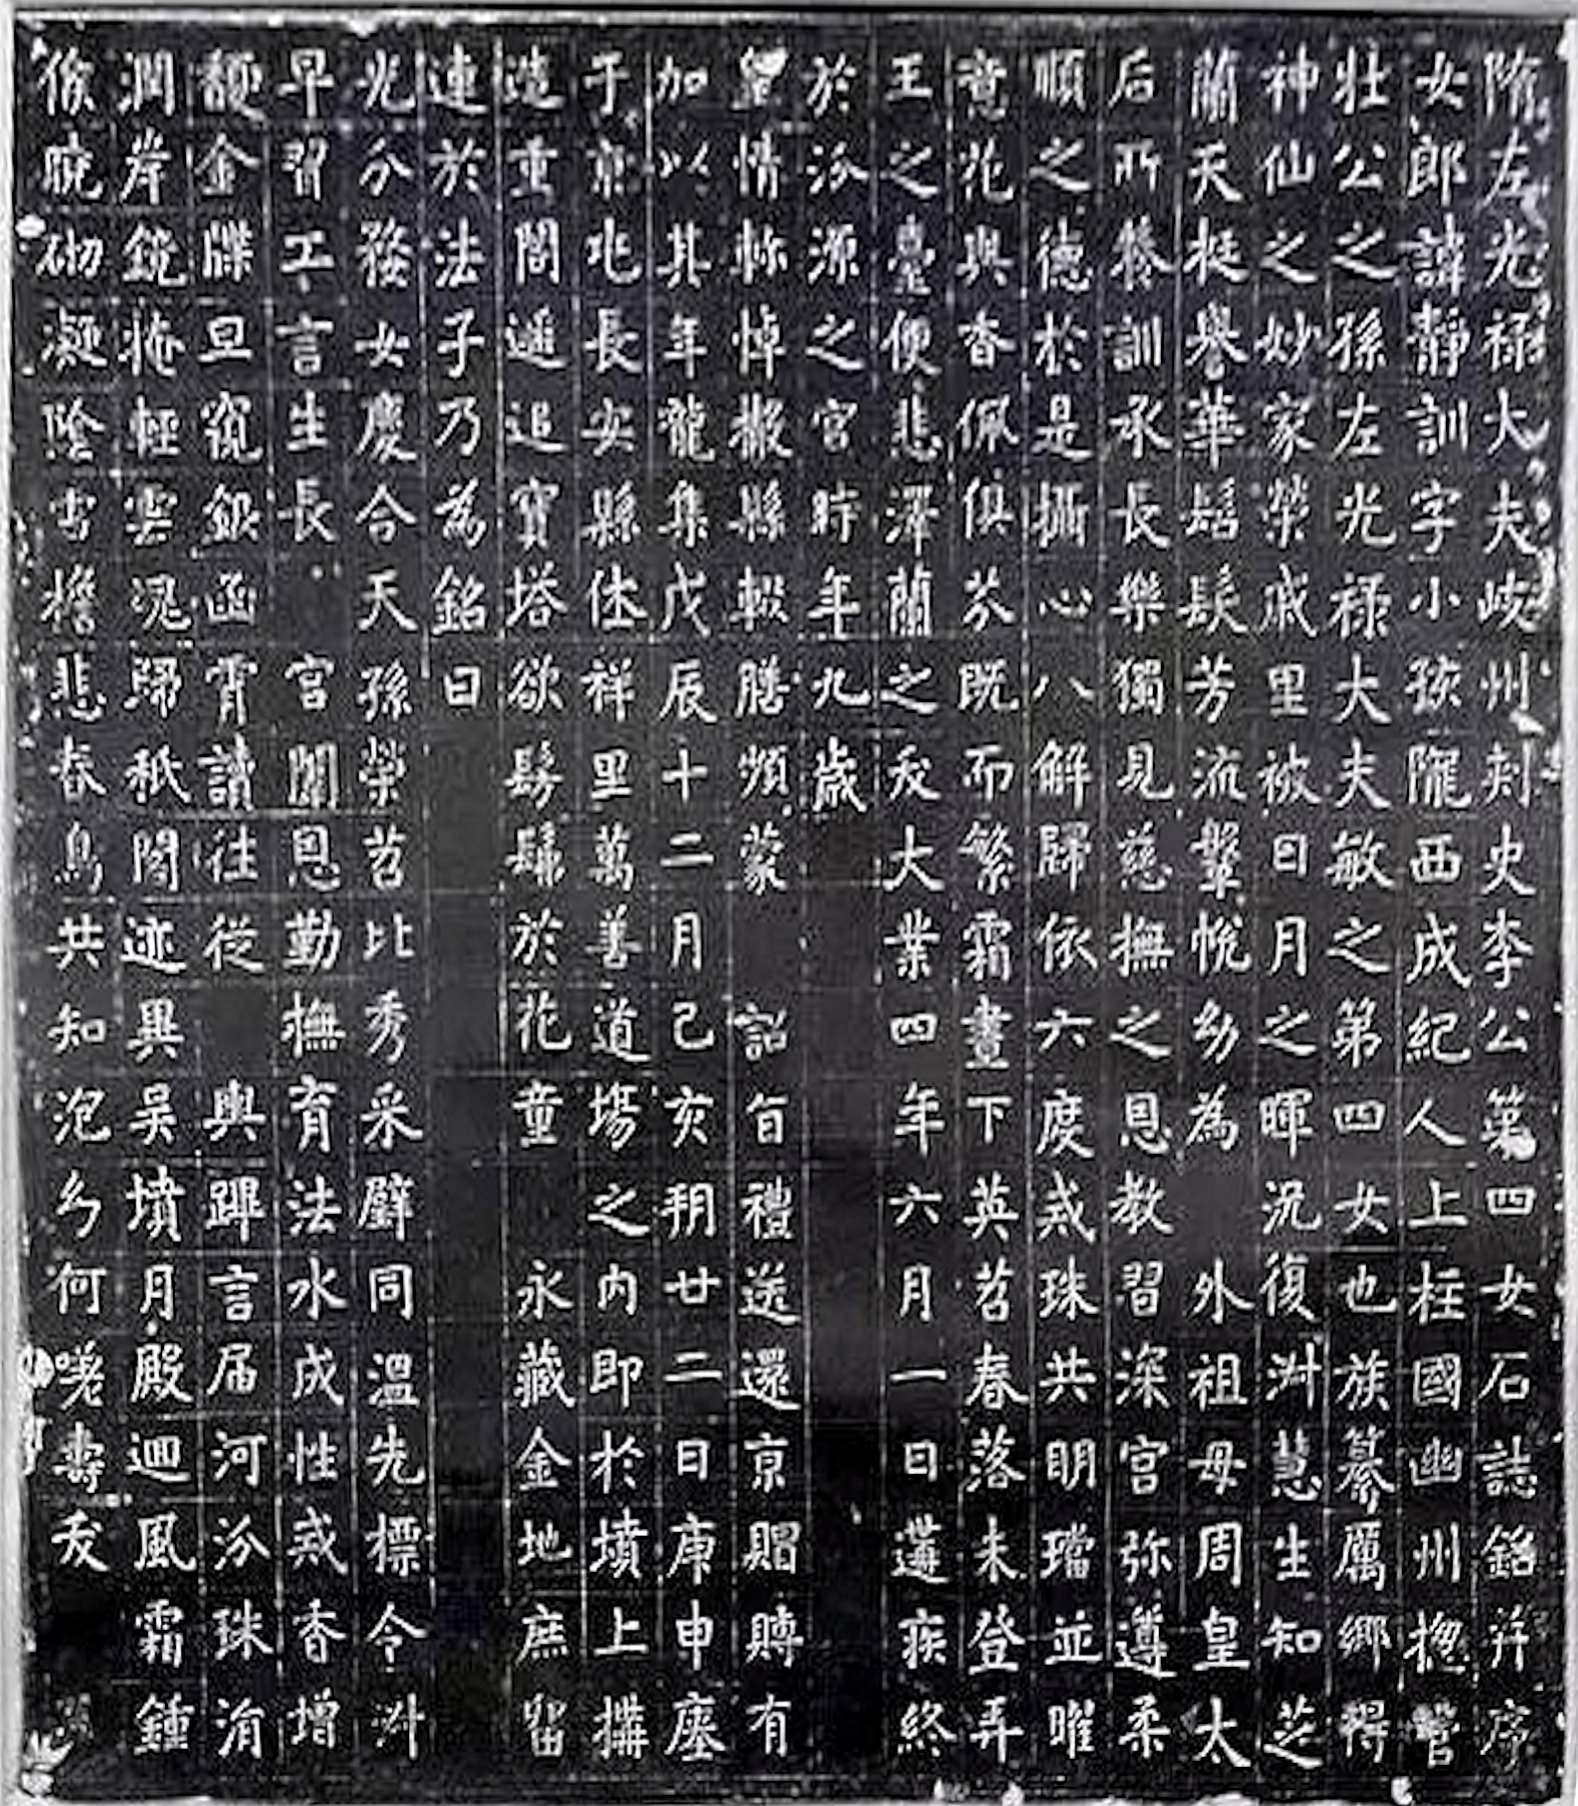 隋左光禄大夫岐州刺史李公第四女石誌銘并序
女郎諱靜訓字小孩隴西成紀人上柱國幽州揔管
壯公之孫左光禄大夫敏之第四女也族纂厲鄉得
神仙之妙家榮戚里被日月之暉況復淑慧生知芝
蘭天挺譽華髫髮芳流鞶帨幼為 外祖母周皇太
后所養訓承長樂獨見慈撫之恩教習深宮弥遵柔
順之德於是攝心八解歸依六度戒珠共明璫並曜
意花與香佩俱芬既而繁霜晝下英苕春落未登弄
王之臺便悲澤蘭之夭大業四年六月一日遘疾終
於汾源之宮時年九歲
皇情軫悼撤縣輟膳頻蒙 詔旨禮送還京賵賻有
加以其年龍集戊辰十二月己亥朔廿二日庚申瘞
于京兆長安縣休祥里萬善道塲之内即於墳上搆
造重閣遥追寶塔欲髣髴於花童 永藏金地庶留
連於法子乃為銘曰
光分婺女慶合天孫榮苕比秀采璧同溫先標令淑
早習工言生長 宮闈恩勤撫育法水成性戒香增
馥金牒旦窺銀函宵讀往從 輿蹕言届河汾珠涓
潤岸鏡掩輕雲魂歸祇閣迹異吳墳月殿迴風霜鍾
候曉砌凝陰雪檐悲春鳥共知泡幻何嗟壽夭